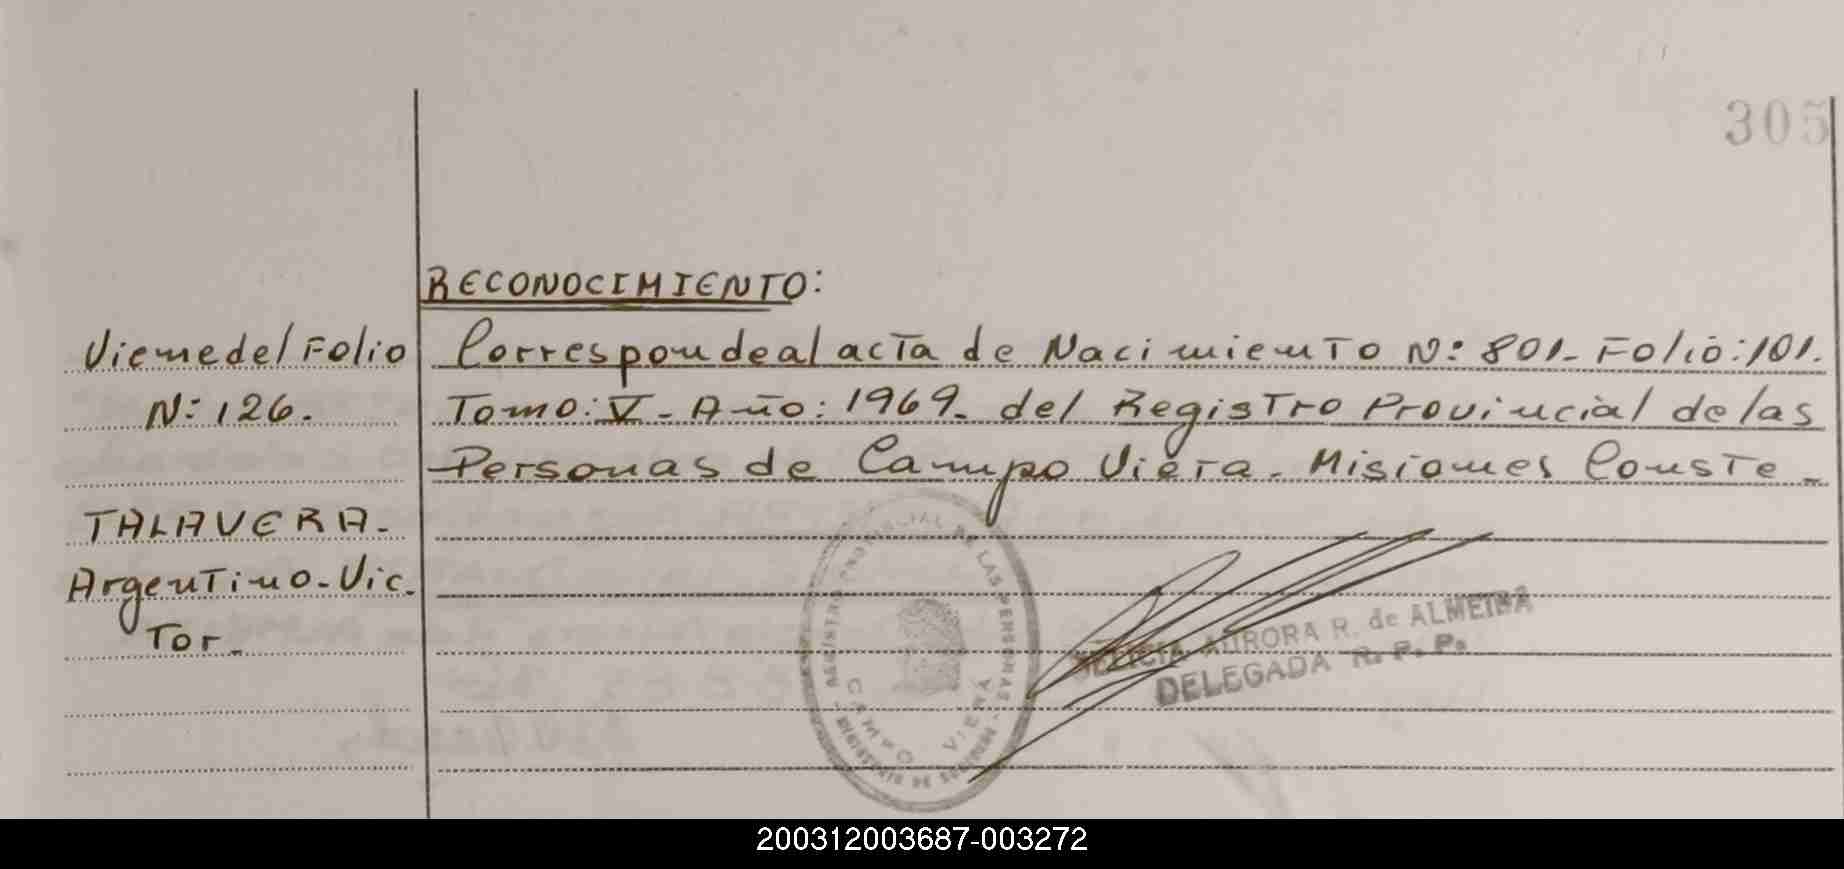 305
RECONOCIMIENTO:
Viene del Folio
N: 126.
TALAVERA.
Argentino-Vic.
Tor.
Corresponde al acta de Nacimiento N: 801- Folio: 101.
Tomo: V- Año: 1969- del Registro Provincial de las
Personas de Campo Viera. Misiones Conste-
REGISTRO PROVINCIAL DE LAS PERSONAS
CAMPO VIERA
AURORA R. de ALMEIDA
DELEGADA R. P. P.
200312003687-003272